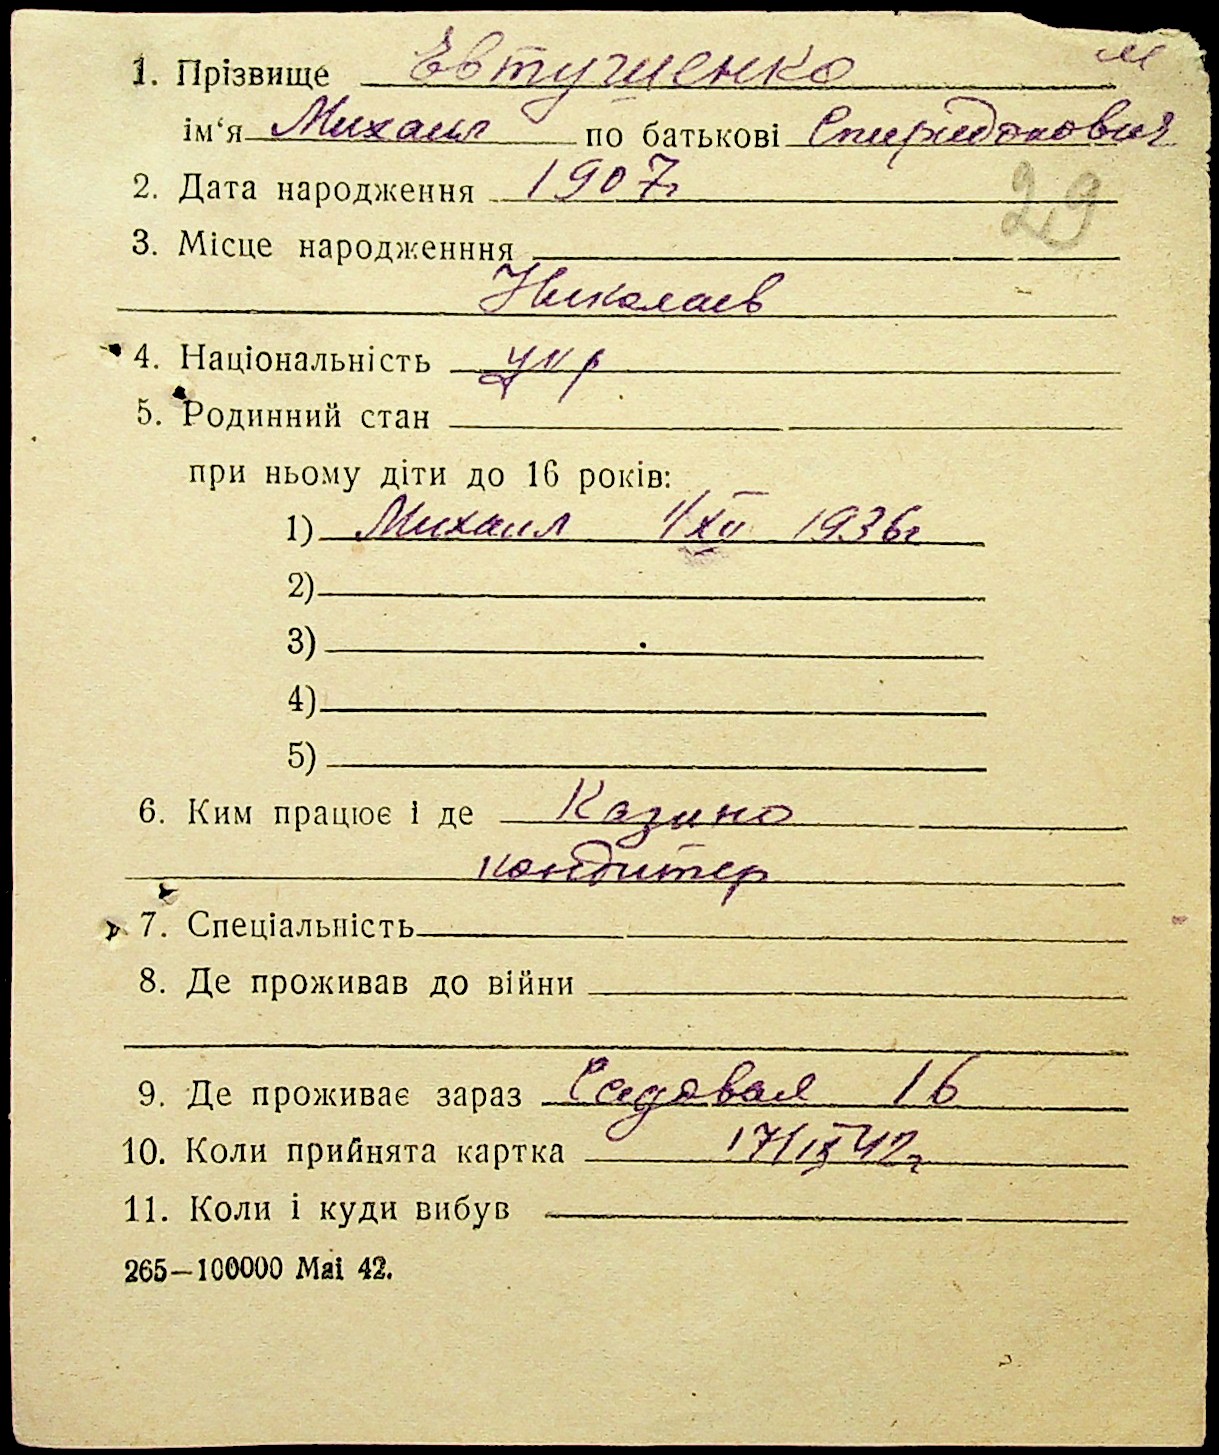 1. Прізвище Евтушенко м
ім‘я Михаил по батькові Спиридонович
2. Дата народження 1907г
29
3. Місце народженння
Николаев
4. Національність укр
5. Родинний стан
при ньому діти до 16 років:
1) Михаил 1/XII 1936г
2)
3)
4)
5)
6. Ким працює і де Казино
кондитер
7. Спеціальність
8. Де проживав до війни
9. Де проживає зараз Садовая 16
10. Коли прийнята картка 17/IX 42г
11. Коли і куди вибув
265—100000 Mai 42.